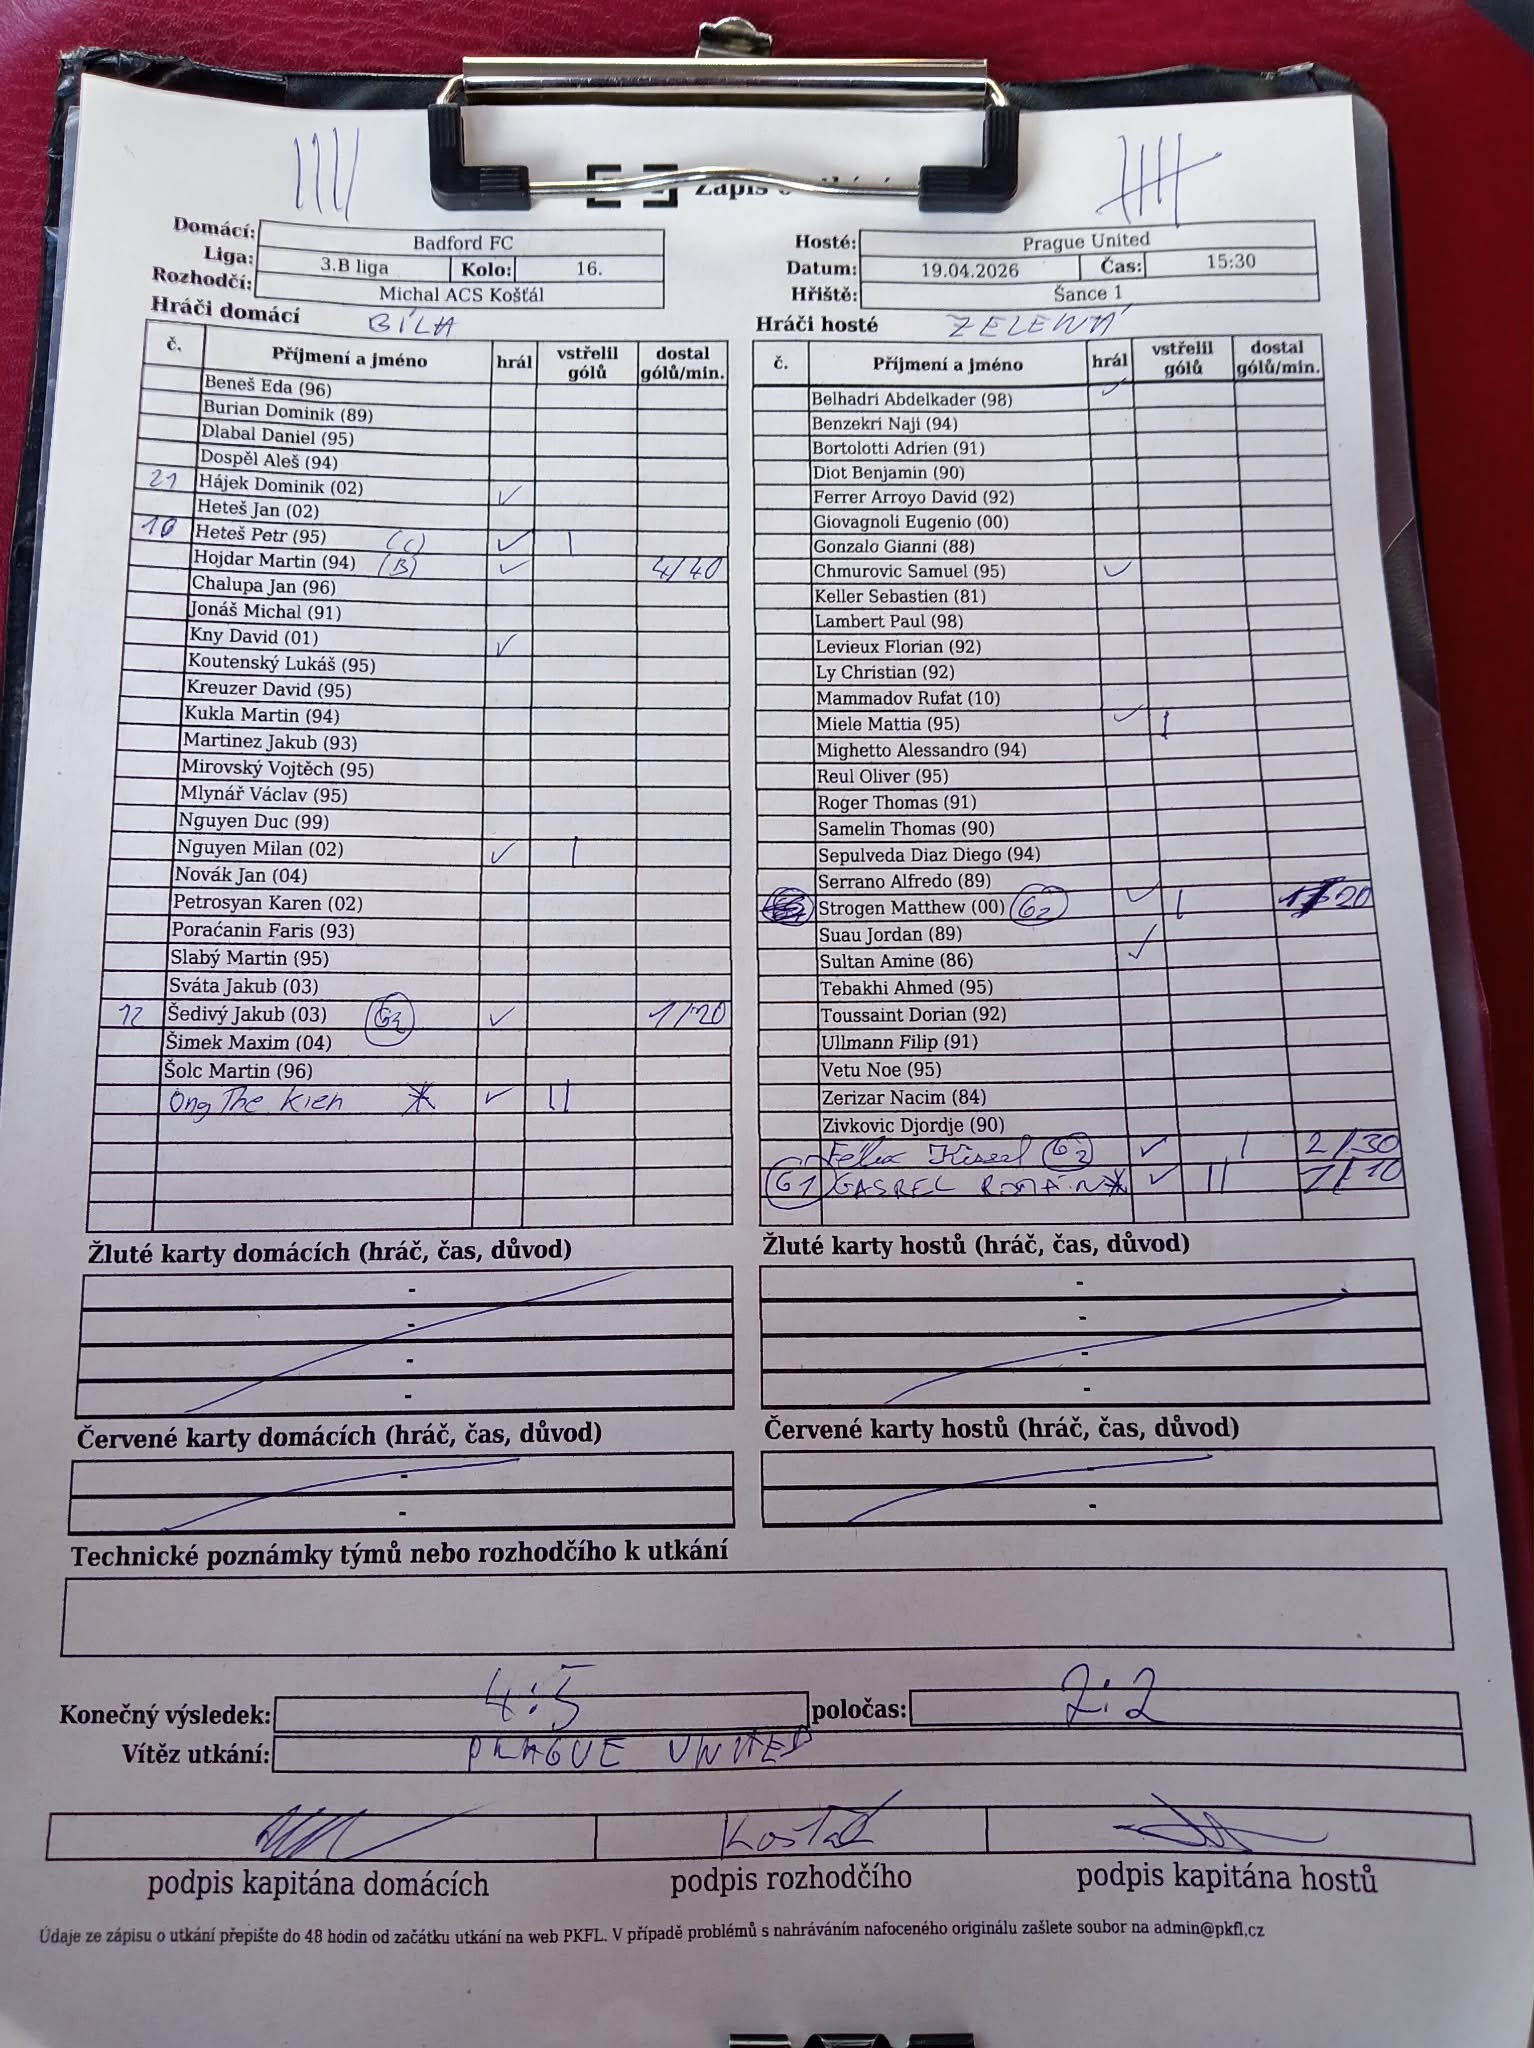 Zápis o
Domácí: Badford FC
Liga: 3.B liga Kolo: 16.
Rozhodčí: Michal ACS Košťál
Hosté: Prague United
Datum: 19.04.2026 Čas: 15:30
Hřiště: Šance 1
Hráči domácí BÍLÁ
č. Příjmení a jméno hrál vstřelil gólů dostal gólů/min.
Beneš Eda (96)
Burian Dominik (89)
Dlabal Daniel (95)
Dospěl Aleš (94)
21 Hájek Dominik (02) ✓
Heteš Jan (02)
10 Heteš Petr (95) (C) ✓ |
Hojdar Martin (94) (B) ✓ 4/40
Chalupa Jan (96)
Jonáš Michal (91)
Kny David (01) ✓
Koutenský Lukáš (95)
Kreuzer David (95)
Kukla Martin (94)
Martinez Jakub (93)
Mirovský Vojtěch (95)
Mlynář Václav (95)
Nguyen Duc (99)
Nguyen Milan (02) ✓ |
Novák Jan (04)
Petrosyan Karen (02)
Poraćanin Faris (93)
Slabý Martin (95)
Sváta Jakub (03)
12 Šedivý Jakub (03) G2 ✓ 1/20
Šimek Maxim (04)
Šolc Martin (96)
Ong The Kien ✓ ||
Hráči hosté ZELENÁ
č. Příjmení a jméno hrál vstřelil gólů dostal gólů/min.
Belhadri Abdelkader (98) ✓
Benzekri Naji (94)
Bortolotti Adrien (91)
Diot Benjamin (90)
Ferrer Arroyo David (92)
Giovagnoli Eugenio (00)
Gonzalo Gianni (88)
Chmurovic Samuel (95) ✓
Keller Sebastien (81)
Lambert Paul (98)
Levieux Florian (92)
Ly Christian (92)
Mammadov Rufat (10)
Miele Mattia (95) ✓ |
Mighetto Alessandro (94)
Reul Oliver (95)
Roger Thomas (91)
Samelin Thomas (90)
Sepulveda Diaz Diego (94)
Serrano Alfredo (89)
Strogen Matthew (00) G2 ✓ | 20
Suau Jordan (89)
Sultan Amine (86) ✓
Tebakhi Ahmed (95)
Toussaint Dorian (92)
Ullmann Filip (91)
Vetu Noe (95)
Zerizar Nacim (84)
Zivkovic Djordje (90)
Felix G2 ✓ | 2/30
G1 ROMÁN ✓ || 1/10
Žluté karty domácích (hráč, čas, důvod)
-
-
-
-
Žluté karty hostů (hráč, čas, důvod)
-
-
-
-
Červené karty domácích (hráč, čas, důvod)
-
-
Červené karty hostů (hráč, čas, důvod)
-
-
Technické poznámky týmů nebo rozhodčího k utkání
Konečný výsledek: 4:5 poločas: 2:2
Vítěz utkání: PRAGUE UNITED
Kostal
podpis kapitána domácích podpis rozhodčího podpis kapitána hostů
Údaje ze zápisu o utkání přepište do 48 hodin od začátku utkání na web PKFL. V případě problémů s nahráváním nafoceného originálu zašlete soubor na admin@pkfl.cz